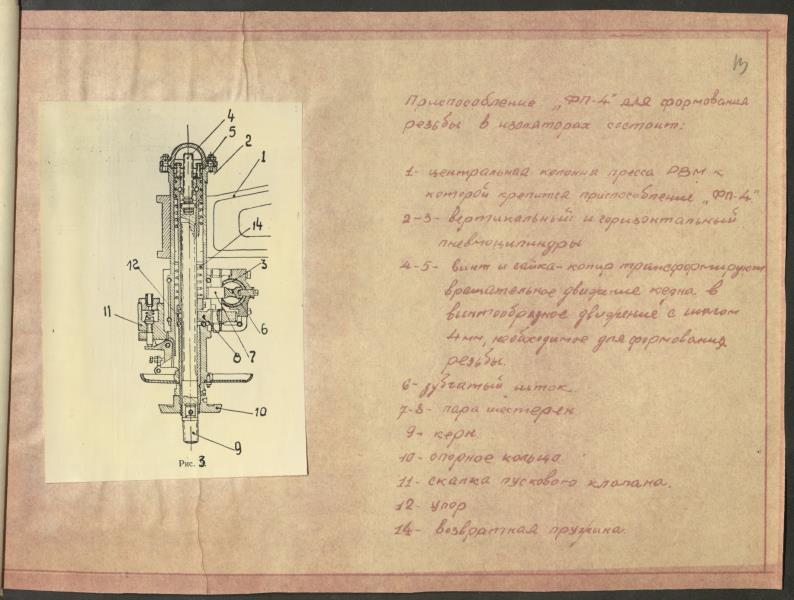 13
4
5
2
1
14
12
3
11
6
7
8
10
9
Рис. 3.
Приспособление „ФП-4" для формования
резьбы в изоляторах состоит:
1- центральная колонна пресса РВМ к
которой крепится приспособление „ФП-4"
2-3- вертикальный и горизонтальный
пневмоцилиндры
4-5- винт и гайка-копир трансформируют
вращательное движение керна в
винтообразное движение с шагом
4мм, необходимое для формования
резьбы.
6- зубчатый шток.
7-8- пара шестерен
9- керн
10- опорное кольцо
11- скалка пускового клапана.
12- упор
14- возвратная пружина.